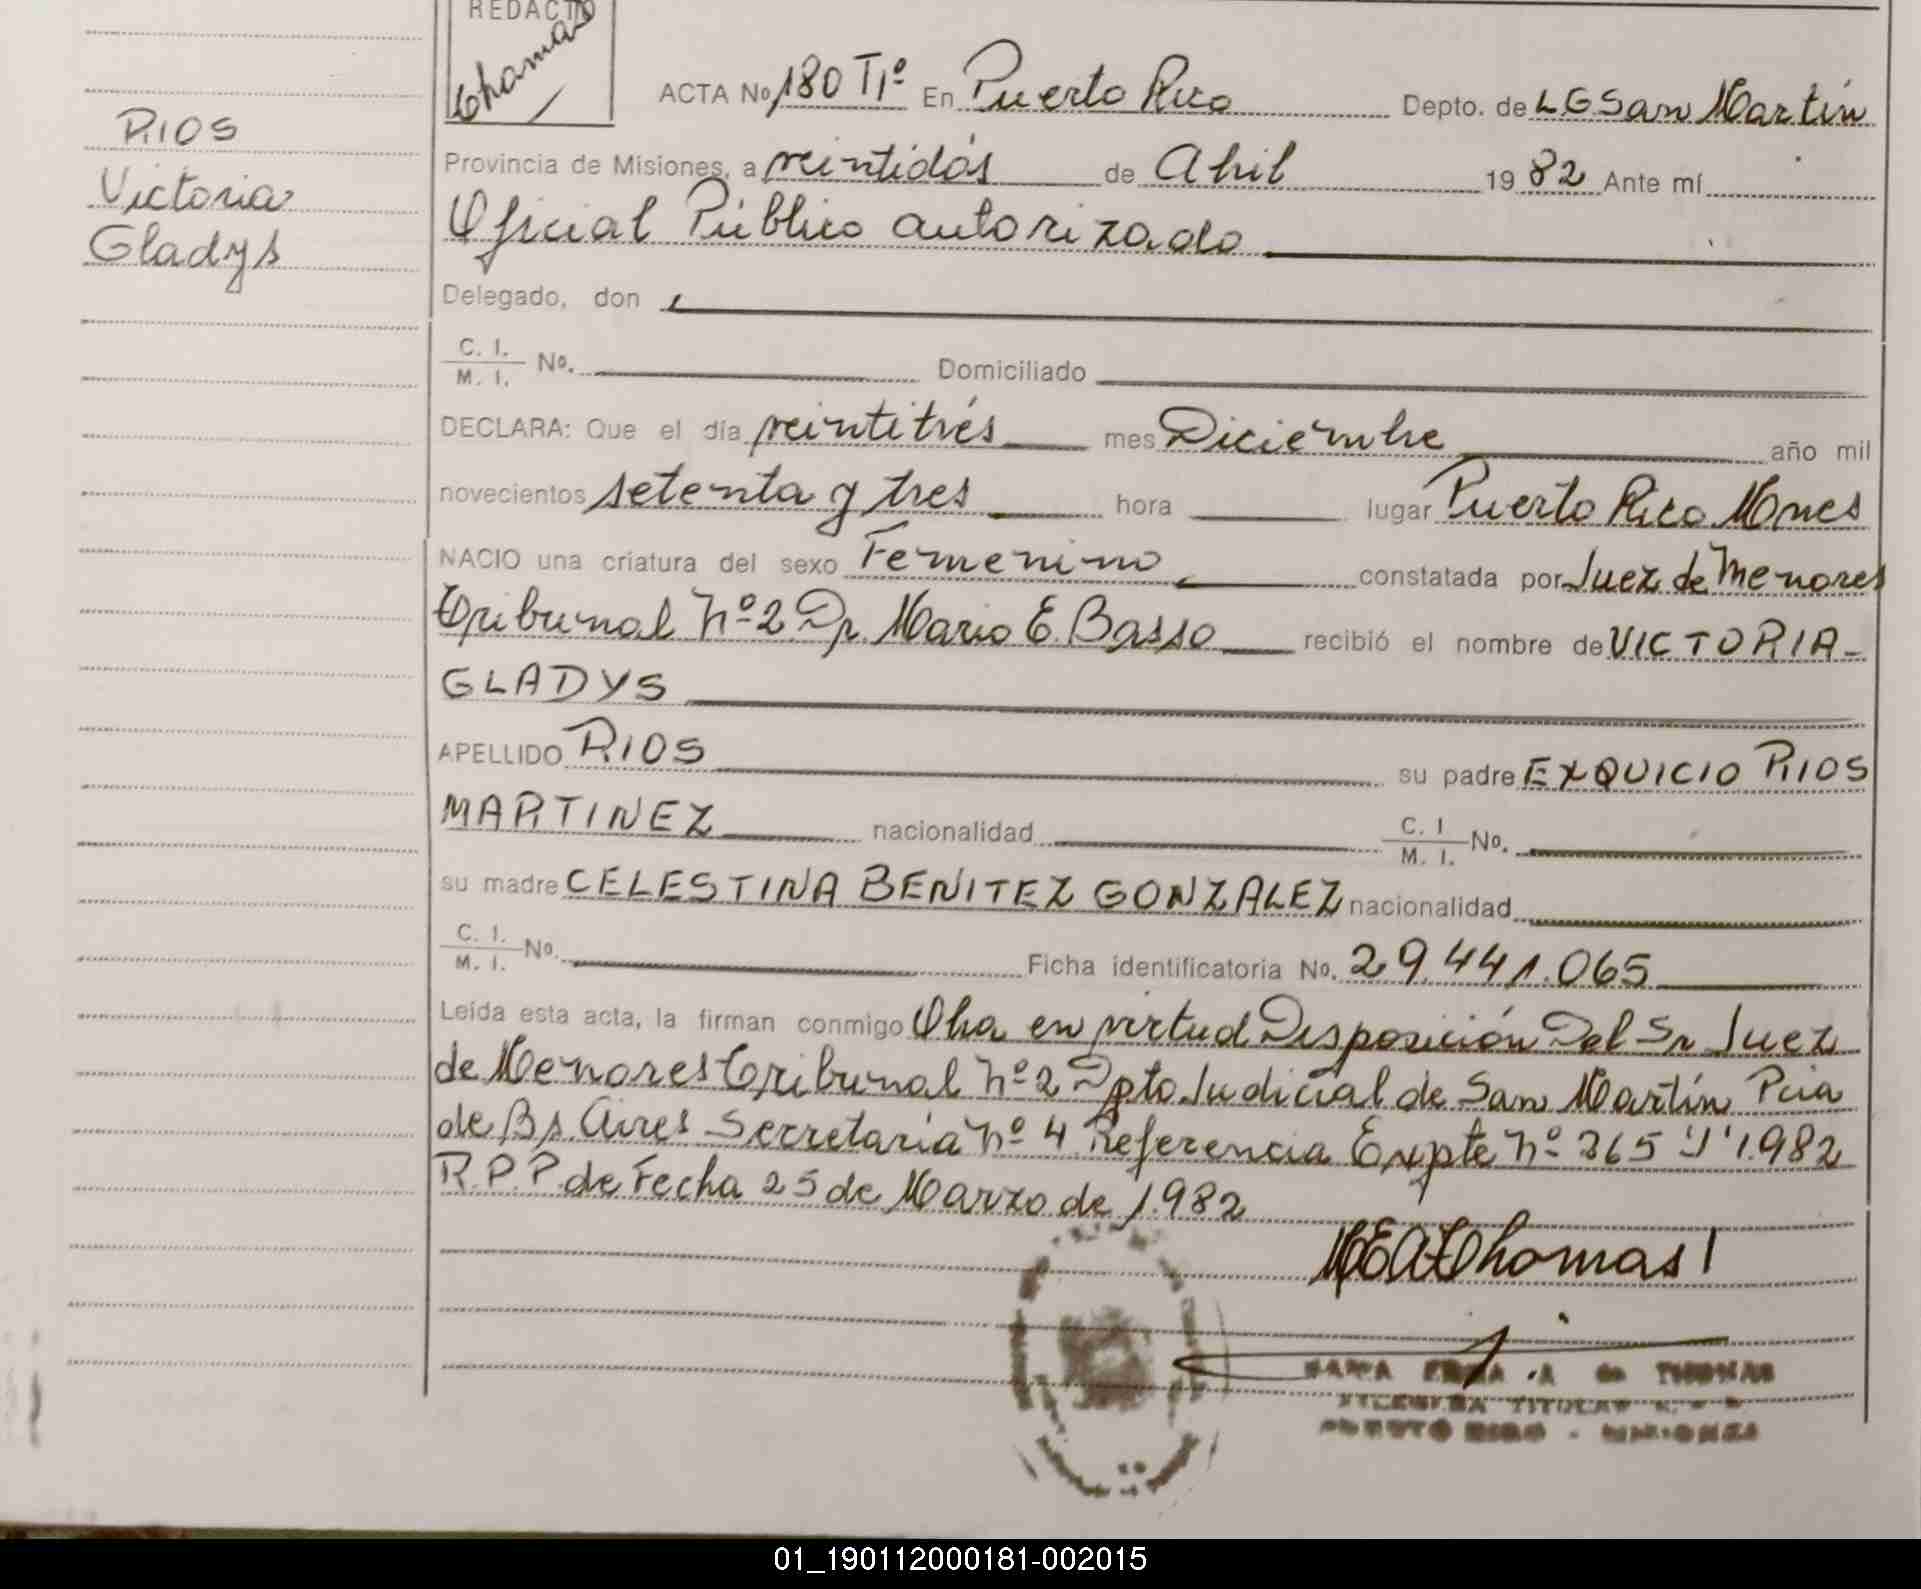 REDACTO
Thomas
ACTA No 180 Tº 1º En Puerto Rico Depto. de L G San Martín
RIOS
Victoria
Gladys
Provincia de Misiones, a veintidós de Abril 1982 Ante mí
Oficial Público autorizado
Delegado, don
C. I. / M. I. No. Domiciliado
DECLARA: Que el día veintitrés mes Diciembre año mil
novecientos setenta y tres hora lugar Puerto Rico Mnes
NACIO una criatura del sexo Femenino constatada por Juez de Menores
Tribunal Nº 2 Dr. Mario E. Basso recibió el nombre de VICTORIA
GLADYS
APELLIDO RIOS su padre EXQUICIO RIOS
MARTINEZ nacionalidad C. I / M. I. No.
su madre CELESTINA BENITEZ GONZALEZ nacionalidad
C. I. / M. I. No. Ficha identificatoria No. 29.441.065
Leída esta acta, la firman conmigo Obra en virtud Disposición Del Sr Juez
de Menores Tribunal Nº 2 Dpto Judicial de San Martín Pcia
de Bs. Aires Secretaría Nº 4 Referencia Expte Nº 365 "J" 1.982
R.P.P. de Fecha 25 de Marzo de 1.982
M E A T Thomas
DE THOMAS
TITULAR
PUERTO RICO - MISIONES
01_190112000181-002015